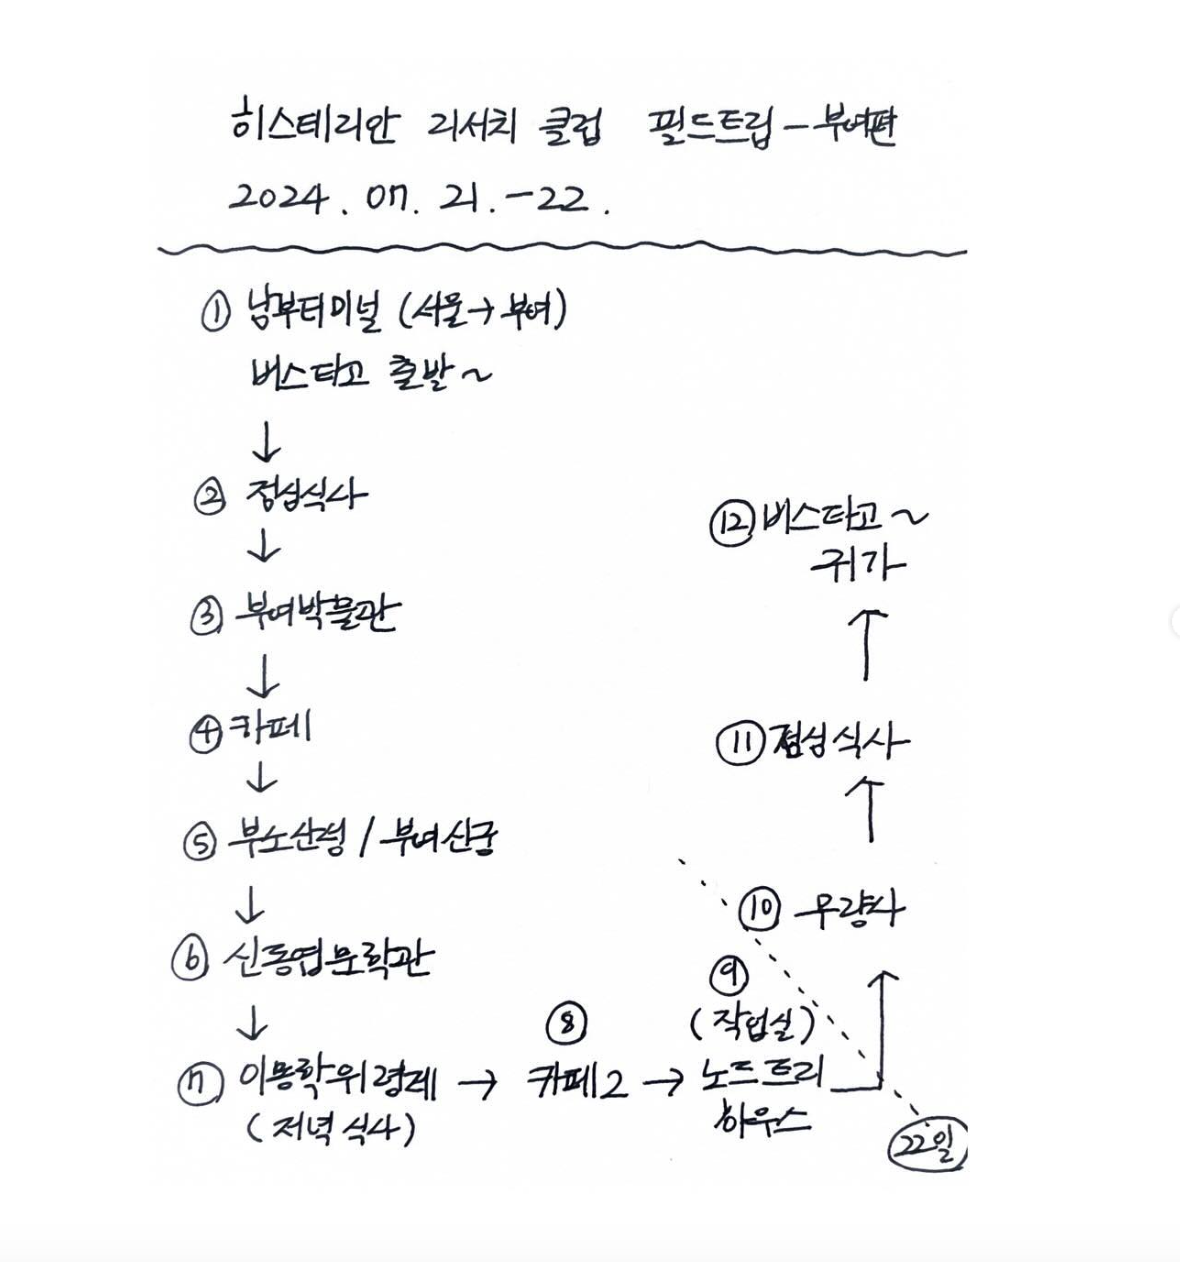 히스테리안 리서치 클럽 필드트립 - 부여편
2024. 07. 21. - 22.
① 남부터미널 (서울→부여)
버스타고 출발~
↓
② 점심식사
↓
③ 부여박물관
↓
④ 카페
↓
⑤ 부소산성 / 부여신궁
↓
⑥ 신동엽문학관
↓
⑦ 이용학위령제 → 
(저녁식사)
⑧
카페2 →
⑨
(작업실)
노드트리
하우스
22일
⑩ 무량사
↑
⑪ 점심식사
↑
⑫ 버스타고~
귀가